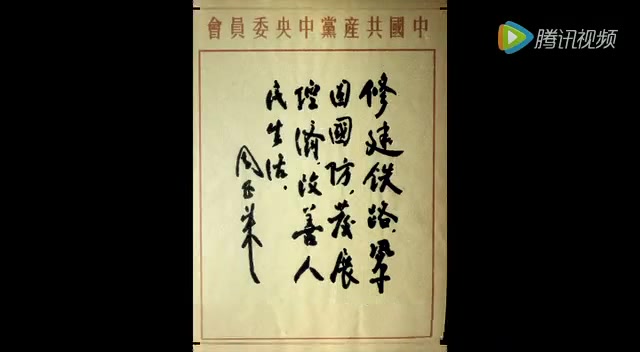 中國共產黨中央委員會
腾讯视频
修建铁路，鞏
固國防，发展
经濟，改善人
民生活。
周恩来